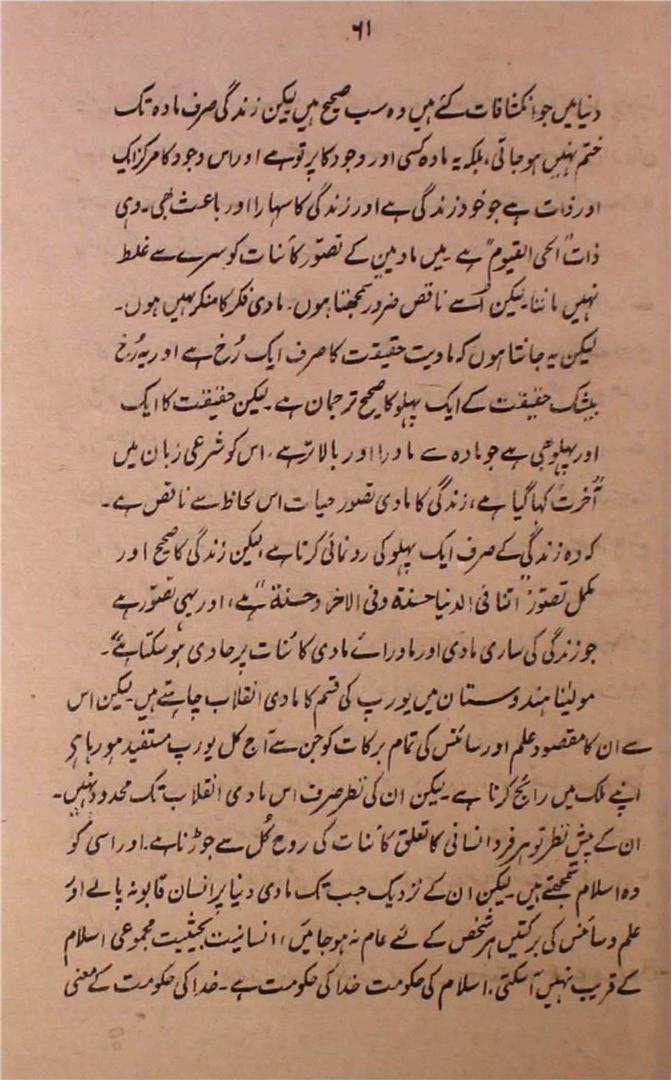 ۶۱
دنیا میں جو انکشافات کئے ہیں وہ سب صحیح ہیں لیکن زندگی صرف مادہ تک
ختم نہیں ہو جاتی، بلکہ یہ مادہ کسی اور وجود کا پرتو ہے اور اس وجود کا مرکز ایک
اور ذات ہے جو خود زندگی ہے اور زندگی کا سہارا اور باعث بھی۔ وہی
ذات "الحی القیوم" ہے۔ میں مادیین کے تصوّر کائنات کو سرے سے غلط
نہیں مانتا۔ لیکن اُسے ناقص ضرور سمجھتا ہوں۔ مادی فکر کا منکر نہیں ہوں۔
لیکن یہ جانتا ہوں کہ مادیت حقیقت کا صرف ایک رُخ ہے اور یہ رُخ
بیشک حقیقت کے ایک پہلو کا صحیح ترجمان ہے۔ لیکن حقیقت کا ایک
اور پہلو بھی ہے جو مادہ سے ماورا اور بالاتر ہے۔ اس کو شرعی زبان میں
"آخرت" کہا گیا ہے، زندگی کا مادی تصور حیات اس لحاظ سے ناقص ہے۔
کہ وہ زندگی کے صرف ایک پہلو کی رونمائی کرتا ہے لیکن زندگی کا صحیح اور
مکمل تصوّر "اتنا فی الدنیا حسنة وفی الاخرة حسنة" ہے، اور یہی تصوّر ہے
جو زندگی کی ساری مادی اور ماورائے مادی کائنات پر حاوی ہو سکتا ہے"۔
مولینا ہندوستان میں یورپ کی قسم کا مادی انقلاب چاہتے ہیں۔ لیکن اس
سے ان کا مقصود علم اور سائنس کی تمام برکات کو جن سے آج کل یورپ مستفید ہو رہا ہے
اپنے ملک میں رائج کرنا ہے۔ لیکن ان کی نظر صرف اس مادی انقلاب تک محدود نہیں۔
ان کے پیش نظر تو ہر فرد انسانی کا تعلق کائنات کی روح کُل سے جوڑنا ہے۔ اور اسی کو
وہ اسلام سمجھتے ہیں۔ لیکن ان کے نزدیک جب تک مادی دنیا پر انسان قابو نہ پالے اور
علم و سائنس کی برکتیں ہر شخص کے لئے عام نہ ہو جائیں، انسانیت بحیثیت مجموعی اسلام
کے قریب نہیں آ سکتی۔ اسلام کی حکومت خدا کی حکومت ہے۔ خدا کی حکومت کے معنی